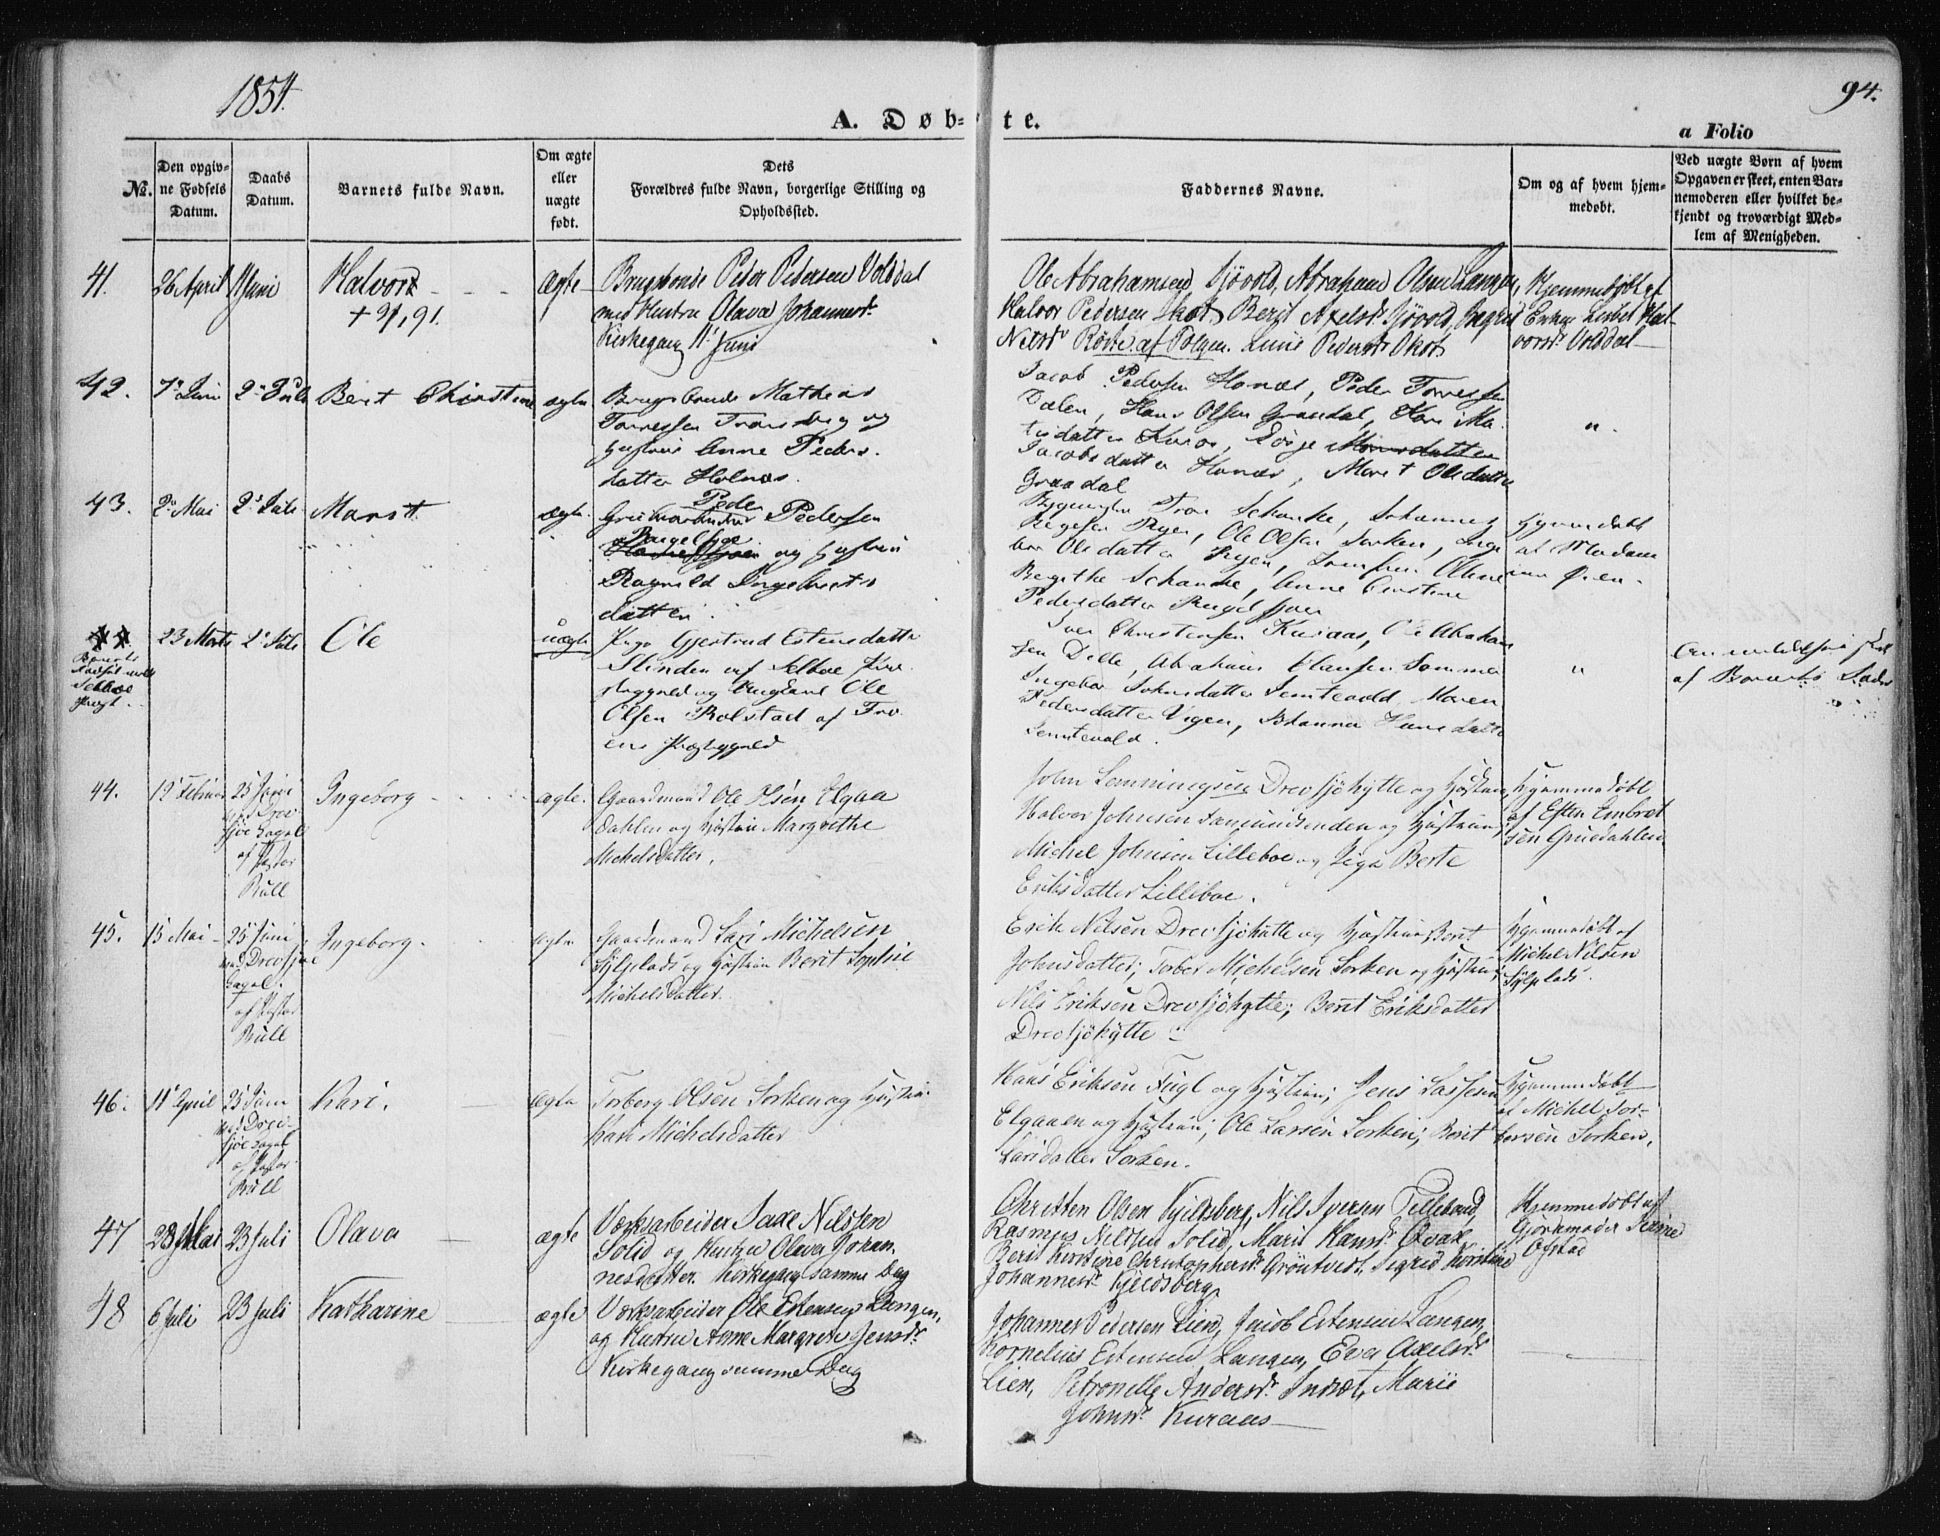 1854.
94.
A. Døb-te.
a Folio
No.
Den opgivne Fødsels Datum.
Daabs Datum.
Barnets fulde Navn.
Om ægte eller uægte født.
Dets Forældres fulde Navn, borgerlige Stilling og Opholdssted.
Faddernes Navne.
Om og af hvem hjemmedøbt.
Ved uægte Børn af hvem Opgaven er skeet, enten Barnemoderen eller hvilket bekjendt og troværdigt Medlem af Menigheden.
41.
26 April
11 Juni
Halvor
+ 9/1 91.
ægte
Brugsbonde Peder Pedersen Volddal
med Hustru Olava Johannesdr
Kirkegang 11 Juni
Ole Abrahamsen Sjövold, Abraham Olsen Langen,
Halvor Pedersen Skot, Berit Axelsdr Sjövold, Ingrid
Nilsdr Røste af Tolgen. Lisis Pedersdr Skot
Hjemmedøbt af
Enke Lisbet Hal-
vorsdr Volddal
42.
7de Juni
2den Juli
Berit Christine
ægte
Brugsbonde Mathias
Torressen Tronsberg og
Hustrue Anne Peders-
datter Holnæs.
Jacob Pedersen Honæs, Peder Torressen
Dalen, Hans Olsen Graadal, Kari Ma-
tisdatter Kuraas,
Jacobsdatter Honæs, Maret Olsdatter
Graadal
"
43.
2 Mai
2 Juli
Marit
ægte
Peder
Pedersen
Rugelsjøe
og Hustrue
Ragnild Ingebrigts
datter.
Tron Schanke, Johannes
Ryen, Ole Olsen Sorken, Inge
bor Olsdatter Ryen, Jomfru Oline
Birgithe Schanke, Anne Cirstine
Pedersdatter Rugelsjøen
Hjemmedøbt
af Madam
Øien.
23 Marts
2 Juli
Ole
uægte
Pige Gjertrud Estensdatter
Slinden af Selboe Præ-
stegjeld og Ungkarl Ole
Olsen Rolstad af Fro-
ens Præstegjeld
Iver Christensen Kuraas, Ole Abraham
sen Dille, Abraham Hansen Sommer
Ingebor Johnsdatter Semtevold, Maren
Pedersdatter Vigen, Johanna Hansdatter
Semtevold.
"
Anmeldelsen skeet
af Barnets Fader
44.
12 Februar
25 Juni
ved Drev-
sjøe Capel
af Pastor
Bull
Ingeborg
ægte.
Gaardmand Ole Olsen Elgaa
dahlen og Hustrue Margrethe
Michelsdatter.
John Semmingsen Drevsjöhytte og Hustrue,
Halvor Johnsen Fæmundsenden og Hustrue,
Michel Johnsen Lilleboe og Pige Berte
Eriksdatter Lilleboe.
Hjemmedøbt
af Esten Embret
sen Gruedahlen
45.
15 Mai
25 Juni
ved Drevsjøe
Capel.
af Pastor
Bull
Ingeborg.
ægte
Gaardmand Lars Michelsen
Sylplads og Hustrue Berit Sophie
Michelsdatter.
Erik Nilsen Drevsjöhytte og Hustrue, Berit
Johnsdatter; Torber Michelsen Sorken og Hustrue;
Nils Eriksen Drevsjöhytte; Berit Eriksdatter
Drevsjöhytte
Hjemmedøbt af
Michel Nilsen
Sylplads.
46.
11 April
25 Juni
ved Drev-
sjøe Capel
af Pastor
Bull
Kari.
ægte
Torberg Olsen Sorken og Hustrue
Kari Michelsdatter
Hans Eriksen Fugl og Hustrue; Jens Lassesen
Elgaaen og Hustrue; Ole Larsen Sorken; Berit
Larsdatter Sorken.
Hjemmedøbt
af Michel Tor-
bersen Sorken.
47
28 Mai
23 Juli
Olava
ægte
Værksarbeider Saxe Nilssen
Solid og Hustru Olava Johan-
nesdatter. Kirkegang samme Dag
Christen Olsen Kjeldsberg, Nils Iversen Tillebund,
Rasmus Nilssen Solid, Marit Hansdr Qvae,
Berit Kirstine Christophersdr Gröntvedt, Sigrid Kirstine
Johannesdr Kjeldsberg
Hjemmedøbt af
Gjordmoder Serine
Ofstad
48
6 Juli
23 Juli
Katharine
ægte
Værksarbeider Ole Estensen Langen,
og Hustru Anne Margrete Jensdr
Kirkegang samme Dag
Johannes Pedersen Lien, Jacob Estensen Langen,
Kornelius Estensen Langen, Eva Axelsdr
Lien, Petronelle Andersdr Indset, Marie
Johnsdr Kuraas